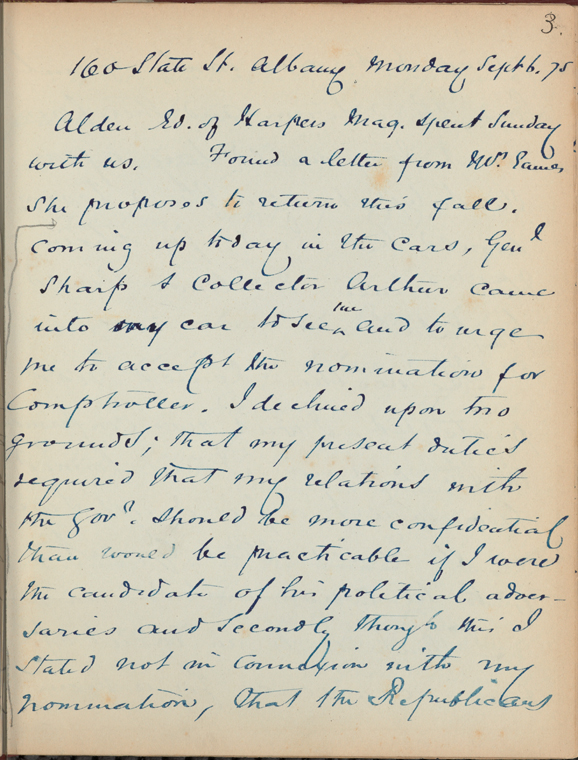 3.
160 State St. Albany Monday Sept 6. 75
Alden Ed. of Harpers Mag. spent Sunday
with us. Found a letter from Mrs. Eames
She proposes to return this fall.
Coming up today in the cars, Genl
Sharp & Collector Arthur came
into my car to see me and to urge
me to accept the nomination for
Comptroller. I declined upon two
grounds; that my present duties
required that my relations with
the Govr. should be more confidential
than would be practicable if I were
the candidate of his political adver-
saries and Secondly though this I
stated not in connexion with my
nomination, that the Republicans